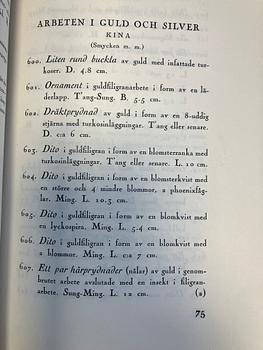 ARBETEN I GULD OCH SILVER
KINA
(Smycken m. m.)
600. Liten rund buckla av guld med infattade tur-
koser. D. 4.8 cm.
601. Ornament i guldfiligranarbete i form av en lä-
derlapp. T'ang-Sung. B. 5.5 cm.
602. Dräktprydnad av guld i form av en 8-uddig
stjärna med turkosinläggningar. T'ang eller senare.
D. c:a 6 cm.
603. Dito i guldfiligran i form av en blomsterranka med
turkosinläggningar. T'ang eller senare. L. 10 cm.
604. Dito i guldfiligran i form av en blomsterkvist med
en större och 4 mindre blommor, 2 phoenixfåg-
lar. Ming. L. 10.3 cm.
605. Dito i guldfiligran i form av en blomkvist med
en lyckospira. Ming. L. 5.4 cm.
606. Dito i guldfiligran i form av en blomkvist med
2 blommor. Ming. L. c:a 7 cm.
607. Ett par hårprydnader (nålar) av guld i genom-
brutet arbete avslutade med en insekt i filigran-
arbete. Sung-Ming. L. 12 cm. (2)
75